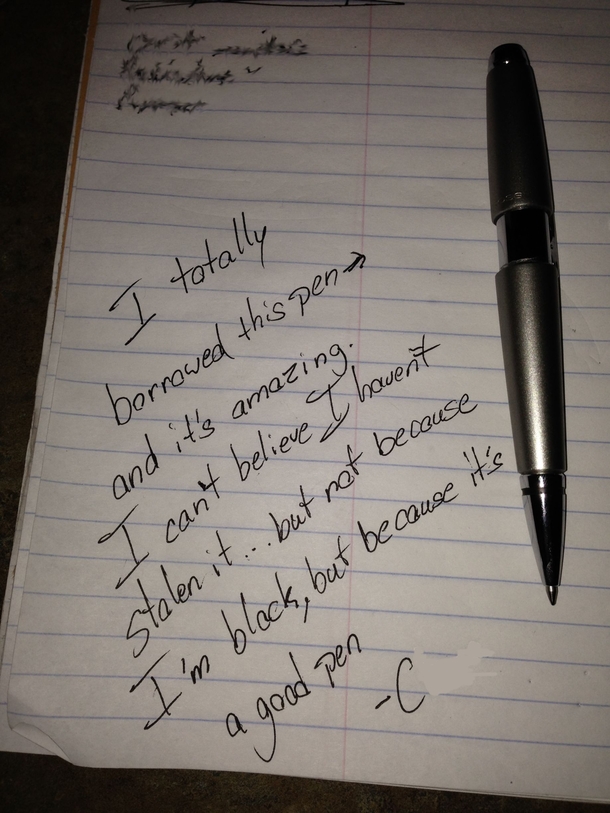 I totally
borrowed this pen →
and it's amazing.
I can't believe I haven't
stolen it...but not because
I'm black, but because it's
a good pen
-C